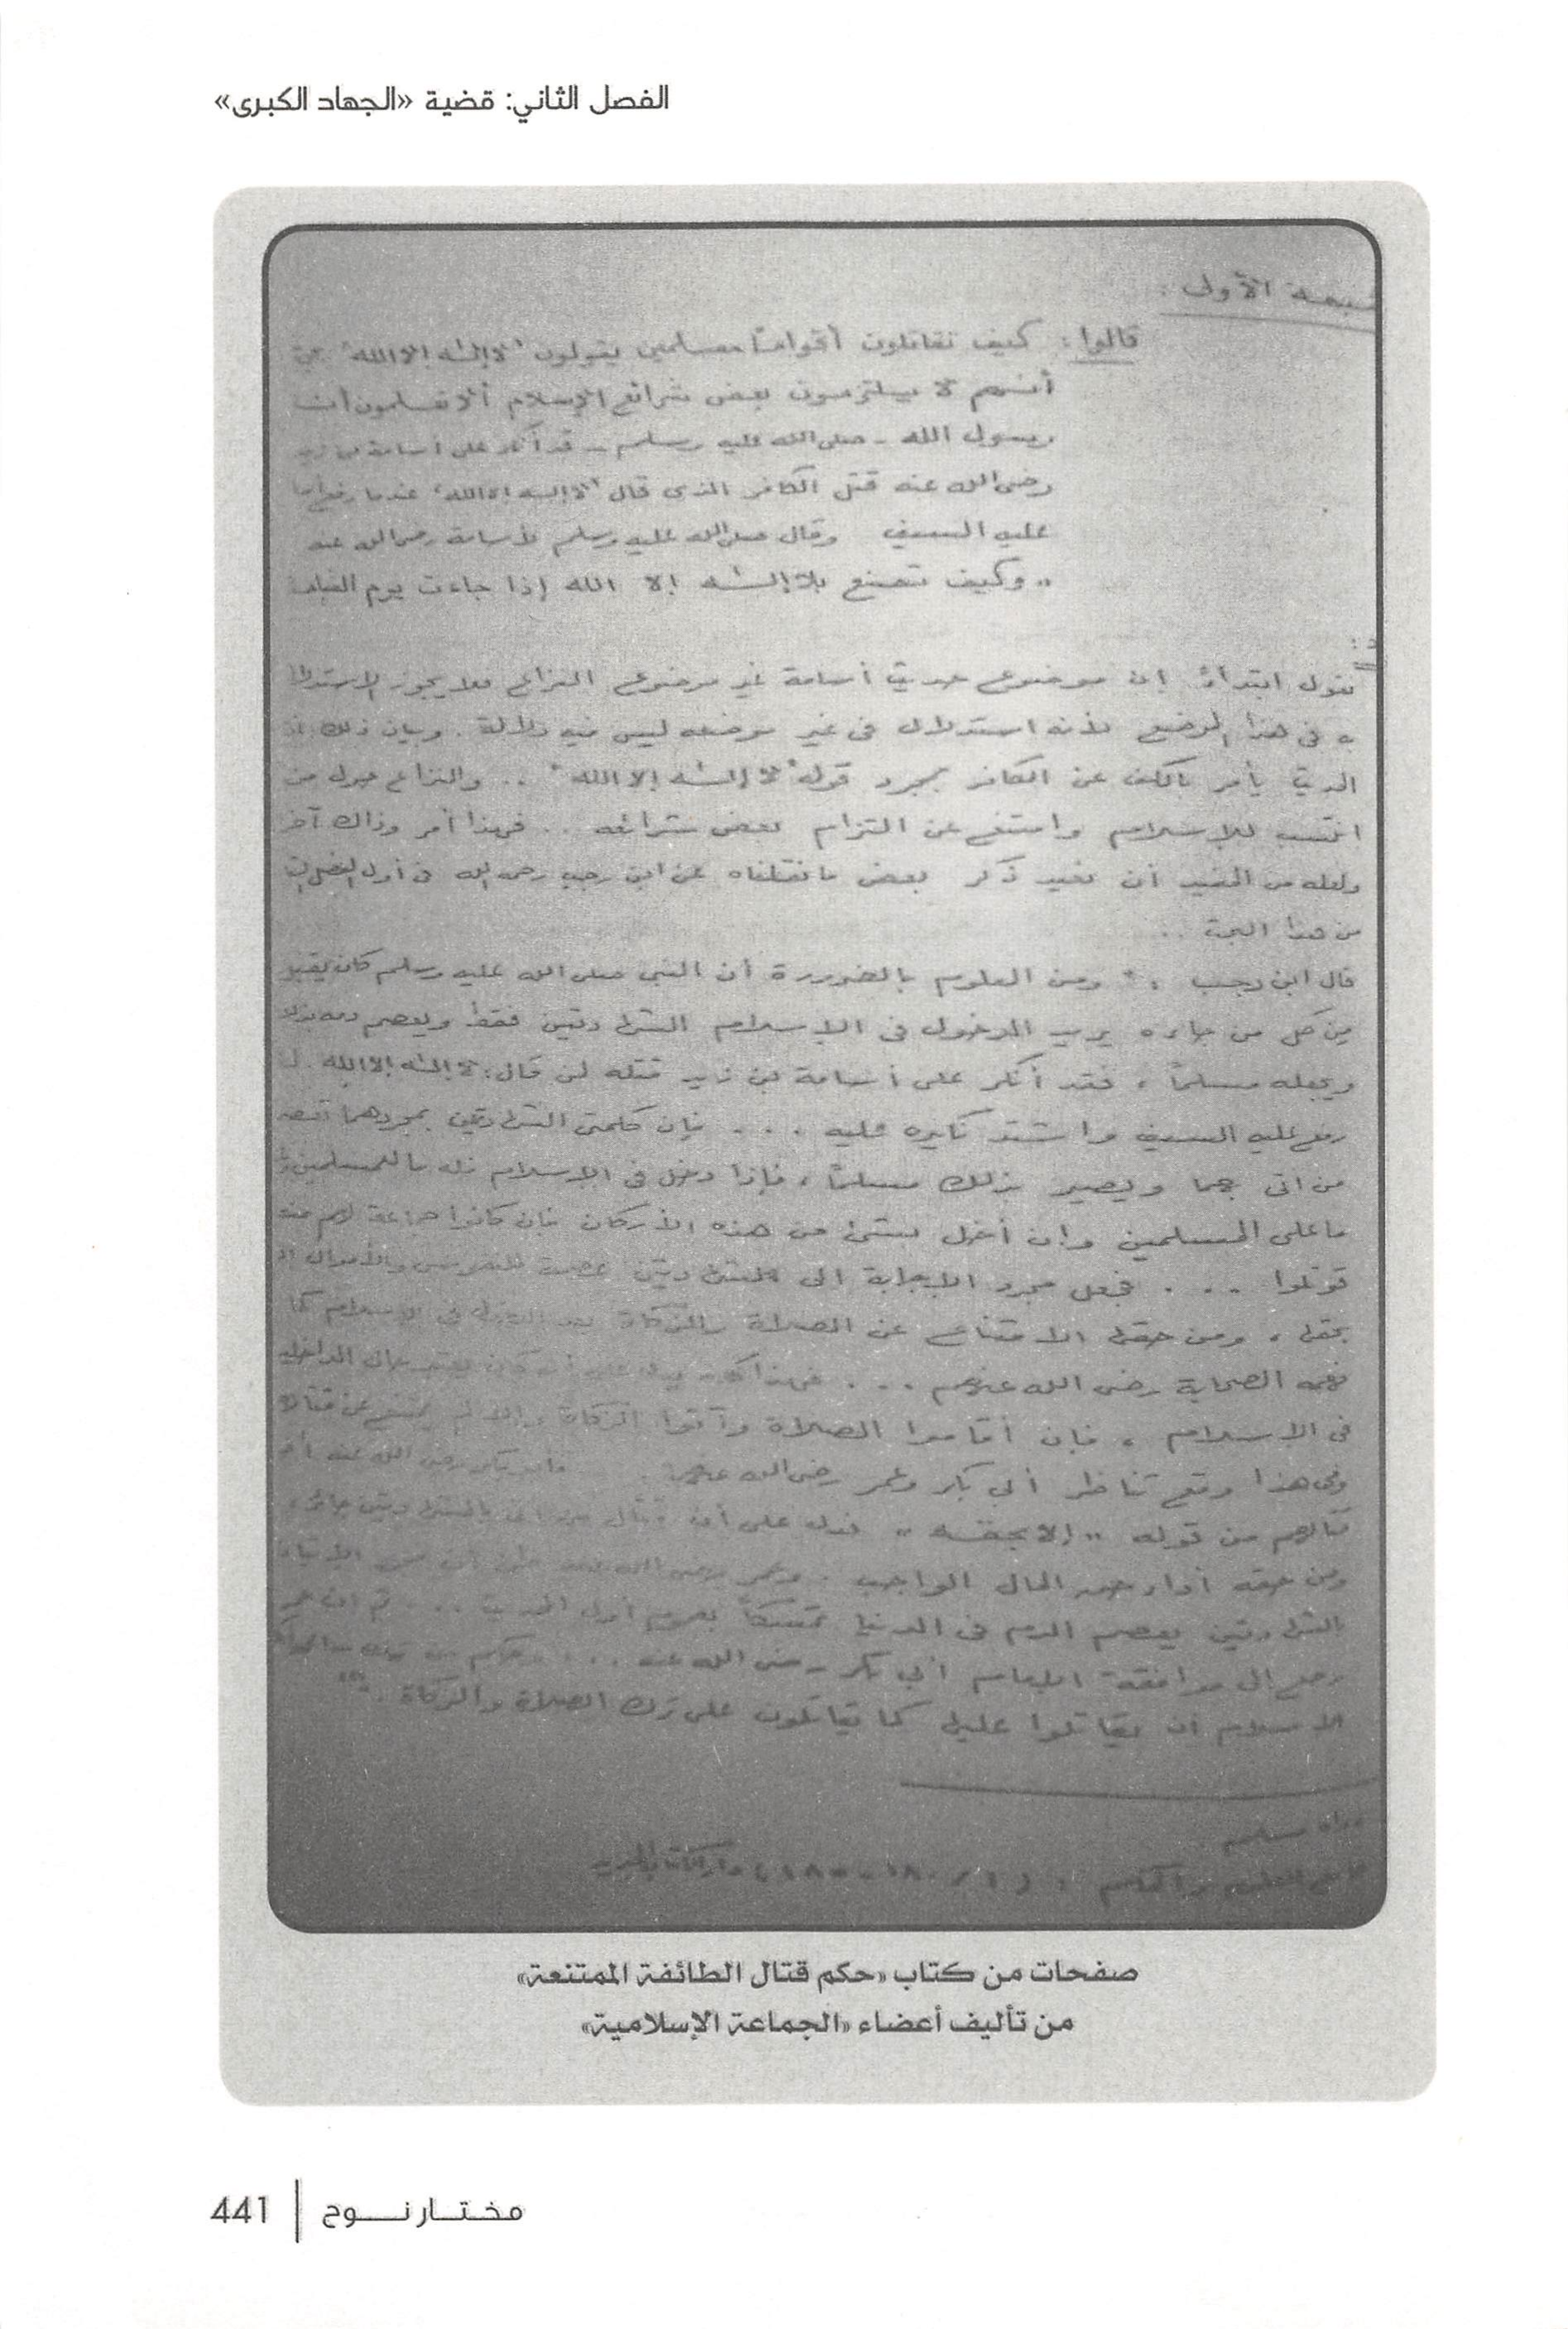 الفصل الثاني: قضية «الجهاد الكبرى»
الأولى :
قالوا : كيف تقاتلون أقواماً مسلمين يقولون "لا إله إلا الله"
أنهم لا يلتزمون بعض شرائع الإسلام ألا تعلمون أن
رسول الله - صلى الله عليه وسلم - قد أنكر على أسامة بن زيد
رضى الله عنه قتل الكافر الذى قال "لا إله إلا الله" عندما رفع
عليه السيف وقال صلى الله عليه وسلم لأسامة رضى الله عنه
" وكيف تصنع بلا إله إلا الله إذا جاءت يوم القيامة
نقول ابتداءً إن موضوع حديث أسامة غير موضوع النزاع فلا يجوز الاستدلال
به فى هذا الموضع لأنه استدلال فى غير موضعه ليس فيه دلالة . وبيان ذلك أن
يأمر بالكف عن الكافر بمجرد قوله "لا إله إلا الله" .. والنزاع حول من
انتسب للإسلام وامتنع عن التزام بعض شرائعه .. فهذا أمر وذاك آخر
ولعله من المفيد أن نعيد ذكر بعض ما نقلناه عن ابن رجب رحمه الله فى أول الفصل
من هذا البحث ..
قال ابن رجب : " ومن المعلوم بالضرورة أن النبى صلى الله عليه وسلم كان يقبل
من كل من جاءه يريد الدخول فى الإسلام الشهادتين فقط ويعصم دمه بذلك
ويجعله مسلماً ، فقد أنكر على أسامة بن زيد قتله لمن قال : لا إله إلا الله
رفع عليه السيف واشتد نكيره عليه ... فإن كلمتى الشهادتين بمجردهما تعصم
من أتى بهما ويصير بذلك مسلماً ، فإذا دخل فى الإسلام فله ما للمسلمين
ما على المسلمين وإن أخل بشئ من هذه الأركان فإن كانوا جماعة لهم منعة
قوتلوا ... فجعل مجرد الإجابة الى الشهادتين عصمة للنفوس والأموال إلا
بحقها ، ومن حقها الامتناع عن الصلاة والزكاة بعد الدخول فى الإسلام كما
فهمه الصحابة رضى الله عنهم ... فهذا كله يدل على أنه كان يعتبر حال الداخلين
فى الإسلام ، فإن أقاموا الصلاة وآتوا الزكاة وإلا لم يمتنع عن قتالهم
وفى هذا وقع تناظر أبى بكر وعمر رضى الله عنهما .. فأبو بكر رضى الله عنه أخذ
قتالهم من قوله " إلا بحقه " فدل على أن قتال من أتى بالشهادتين جائز ،
ومن حقه أداء حق المال الواجب . وعمر رضى الله عنه ظن أن مجرد الإتيان
بالشهادتين يعصم الدم فى الدنيا تمسكاً بعموم أول الحديث ... ثم إن عمر
رجع إلى موافقة أبى بكر رضى الله عنه ...
الإسلام أن يقاتلوا عليها كما يقاتلون على ترك الصلاة والزكاة . "
رواه مسلم
جامع العلوم والحكم
صفحات من كتاب «حكم قتال الطائفة الممتنعة»
من تأليف أعضاء «الجماعة الإسلامية»
مختار نوح | 441